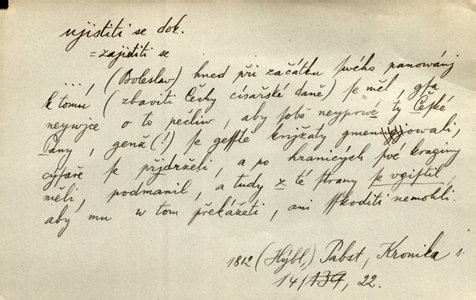 ujistiti se dok.
= zajistiti se
..., (Boleslav) hned při začátku swého panowánj
k tomu (zbaviti Čechy císařské daně) se měl, gsa
neywjce o to pečliw, aby sobě neyprwé ty České
Pány, genž (!) se gesstě knjžaty gmenowali,
cysaře se přjdrželi, a po hranicých swé kraginy
měli, podmanil, a tudy z té strany se vgistil,
aby mu w tom překážeti, ani sskoditi nemohli.
1812 (Hýbl,) Pabst, Kronika i.
14/139, 22.